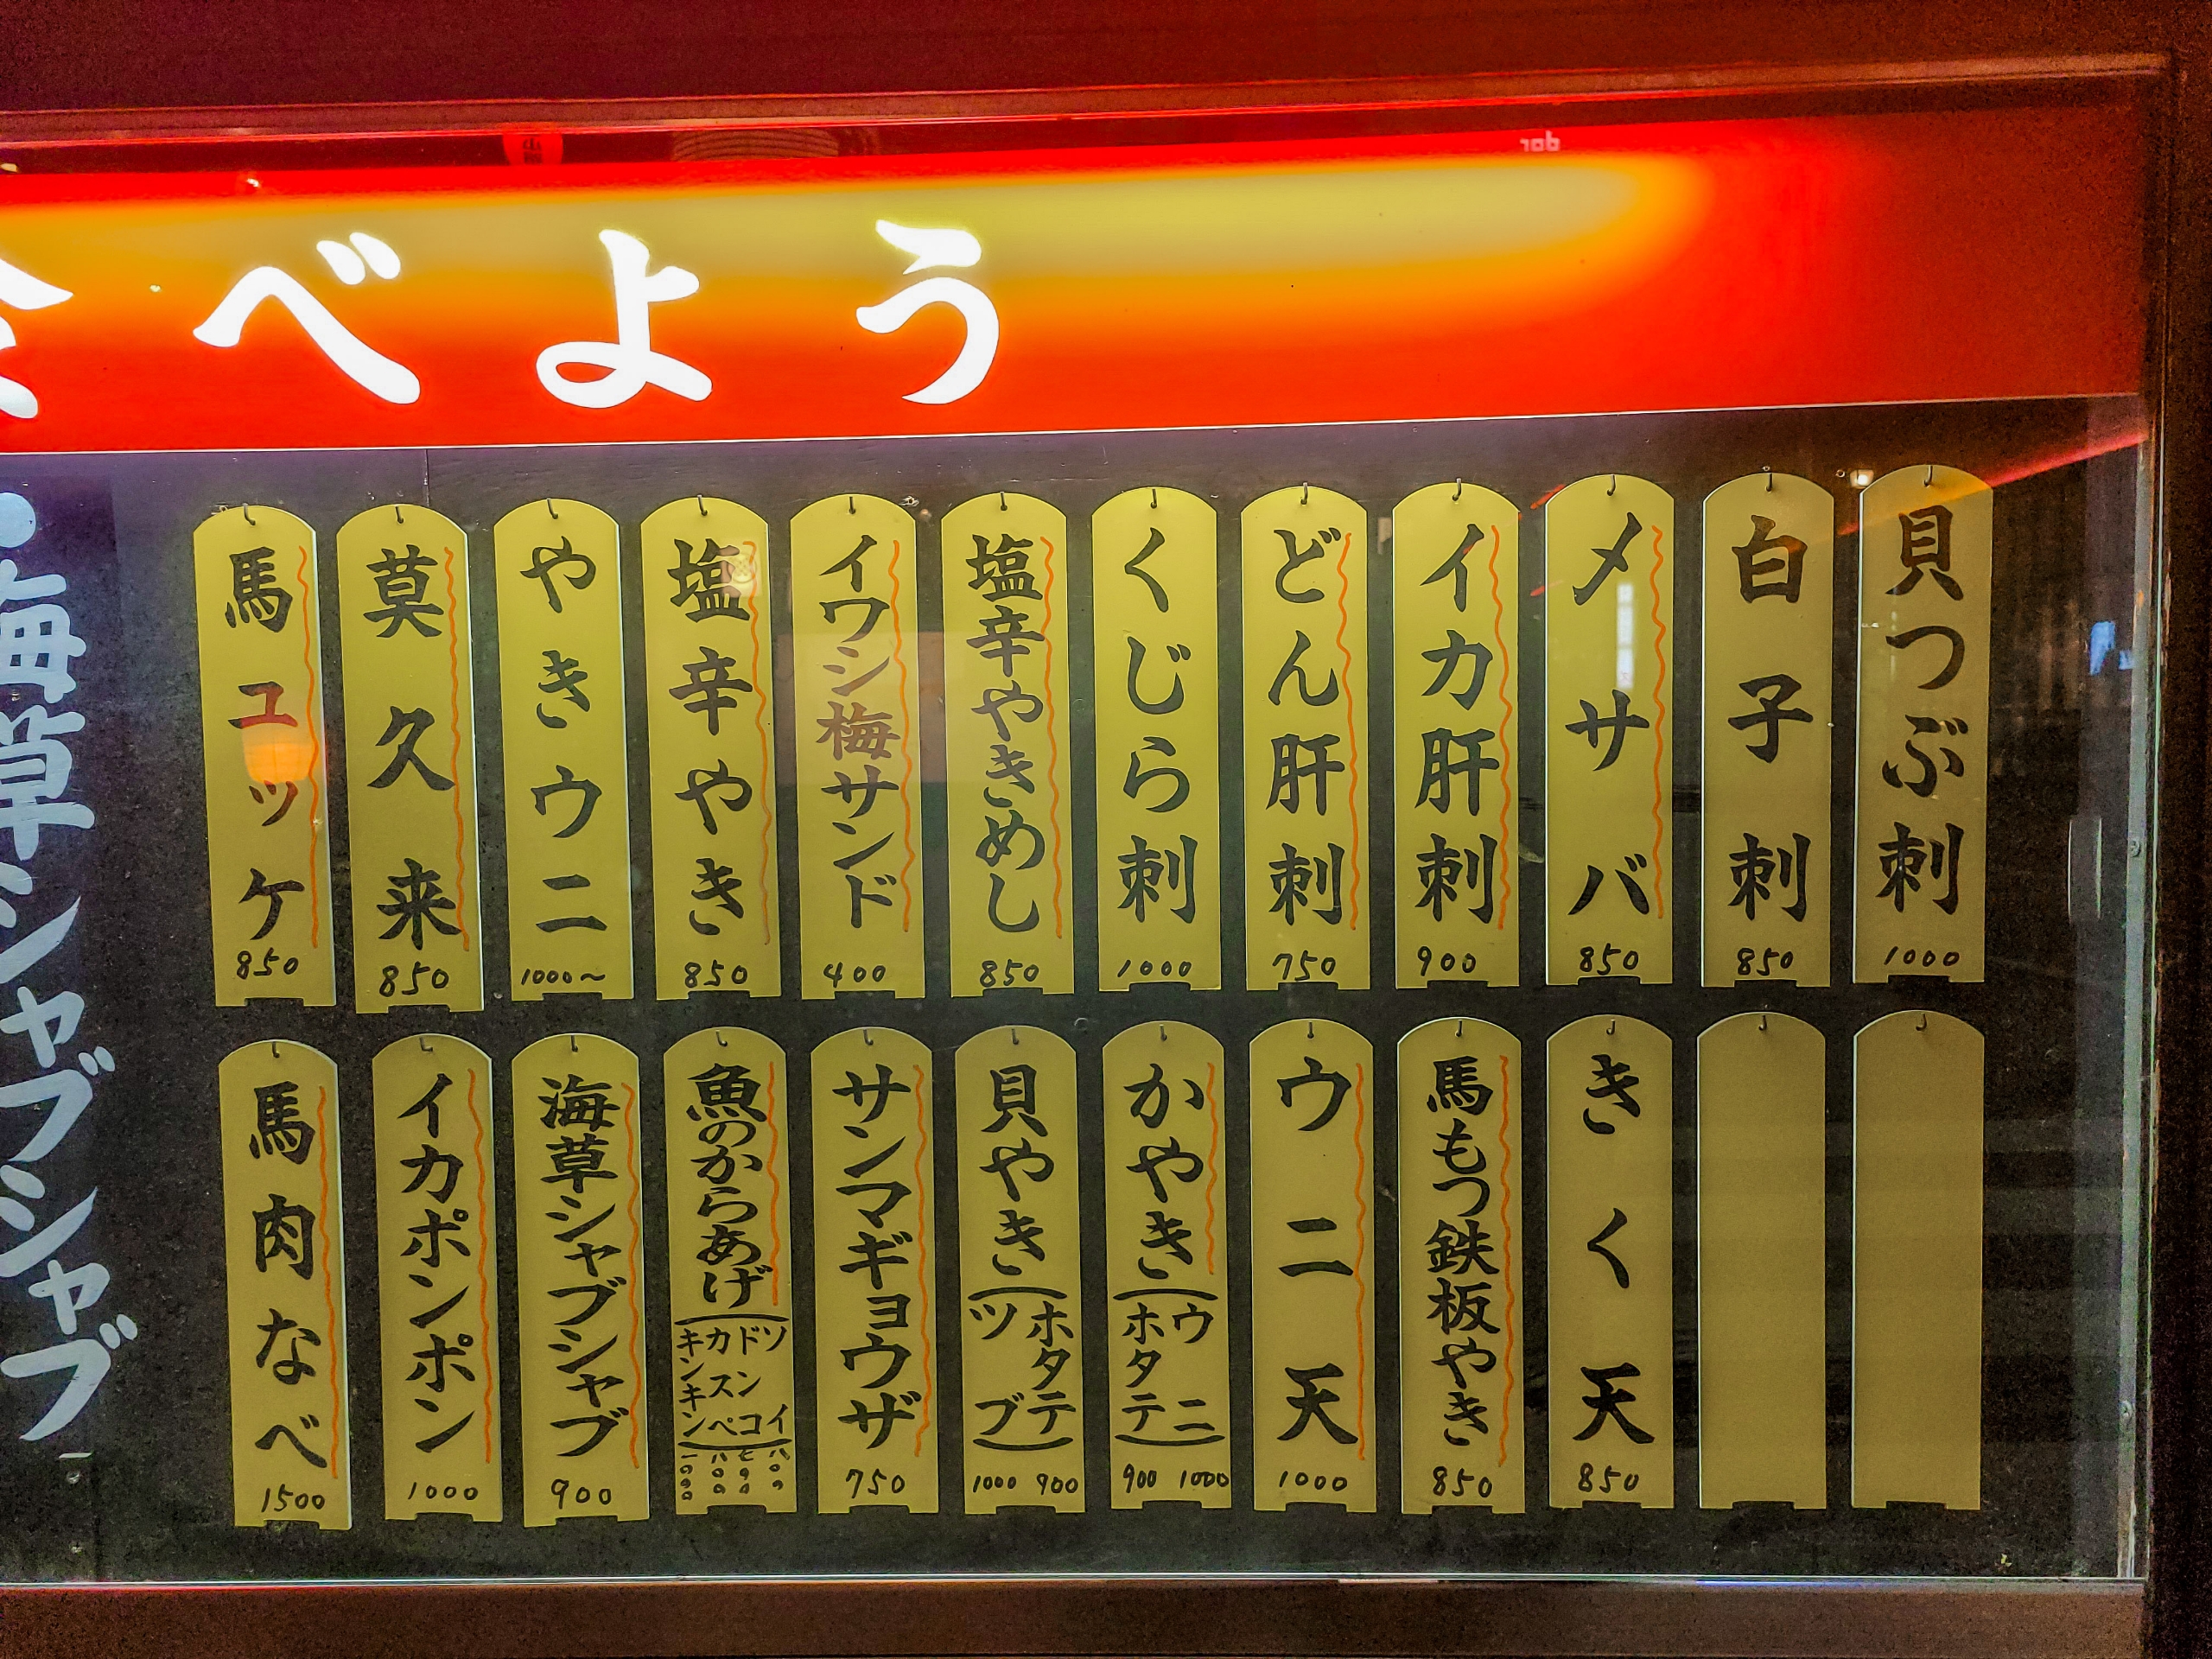 べよう
貝つぶ刺 1000
白子刺 850
〆サバ 850
イカ肝刺 900
どん肝刺 750
くじら刺 1000
塩辛やきめし 850
イワシ梅サンド 400
塩辛やき 850
やきウニ 1000~
莫久来 850
馬ユッケ 850
きく天 850
馬もつ鉄板やき 850
ウニ天 1000
かやき(ウニ ホタテ) 1000 900
貝やき(ホタテ ツブ) 900 1000
サンマギョウザ 750
魚のからあげ(ソイ ドンコ カスペ キンキン) 八〇〇 七〇〇 八〇〇 一〇〇〇
海草シャブシャブ 900
イカポンポン 1000
馬肉なべ 1500
・海草シャブシャブ